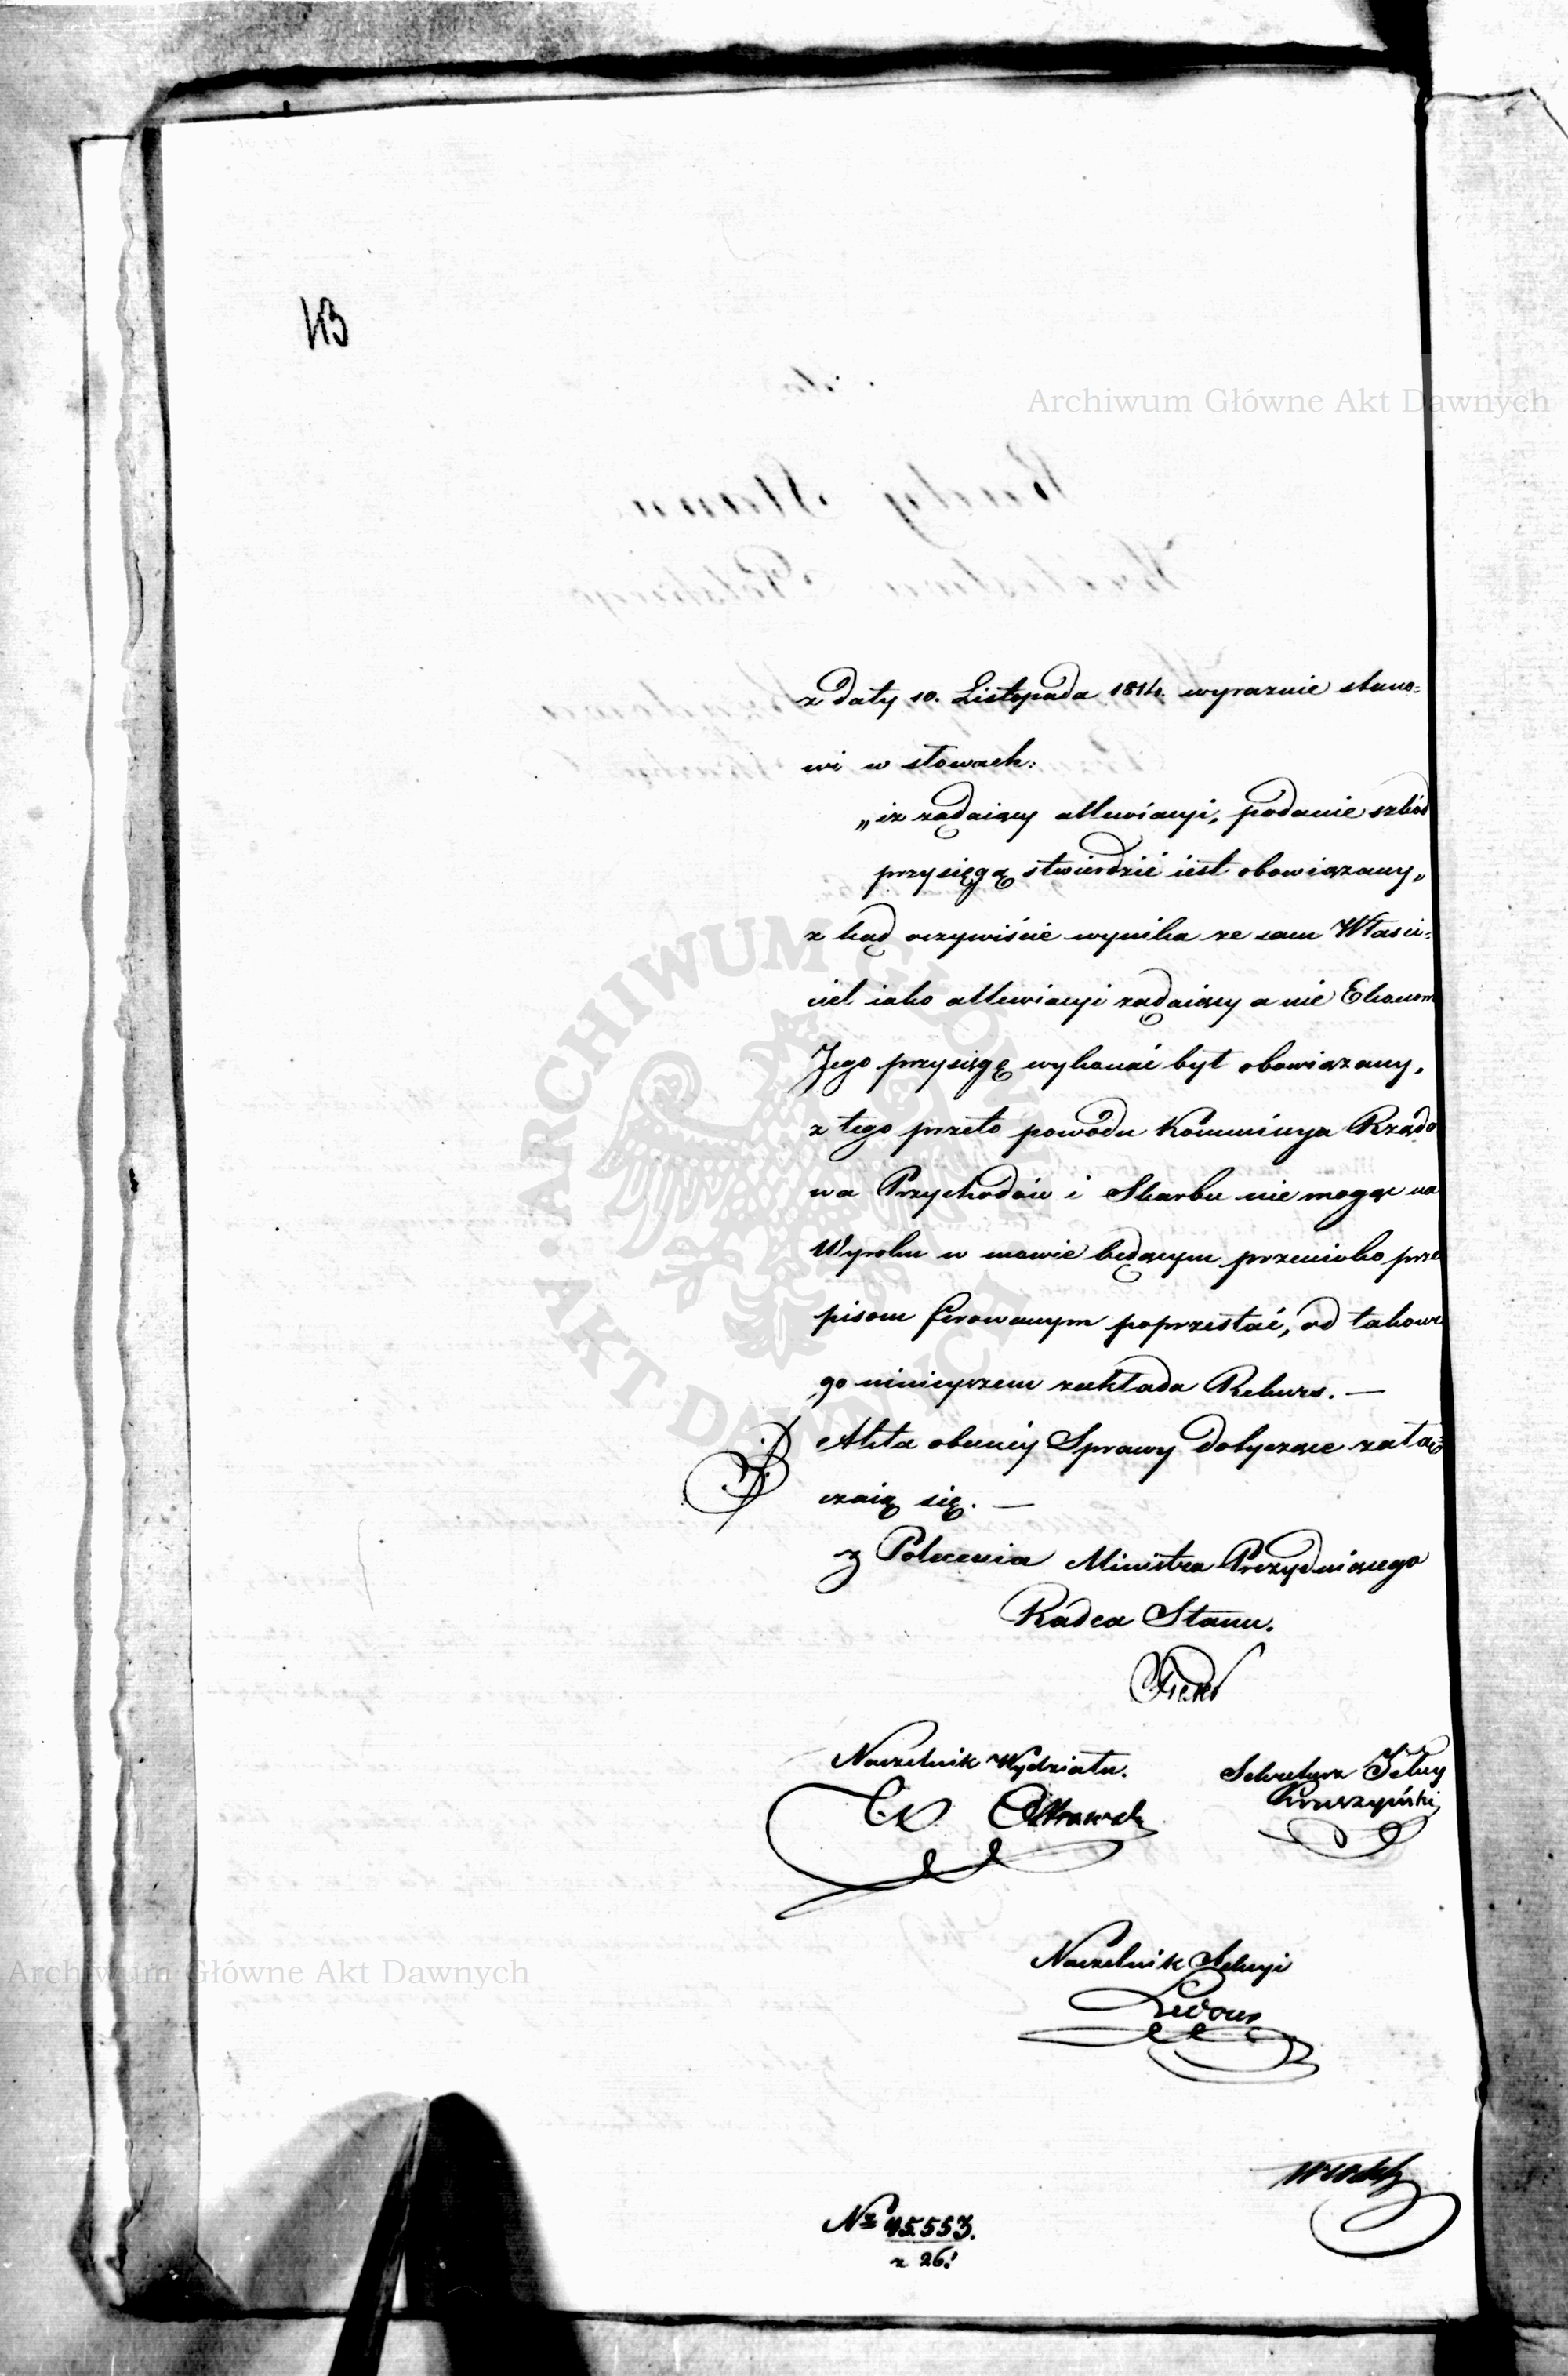 43
Archiwum Główne Akt Dawnych
z daty 10. Listopada 1814. wyraznie stano=
wi w słowach:
„iz ządaiący allewiacyi, podanie szkód
przysięgą stwierdzić iest obowiązany„
z kąd oczywiście wynika ze sam Właści=
ciel iako allewiacyi ządaiący a nie Ekonom
Jego przysięgę wykonać był obowiązany,
z tego przeto powodu Kommissya Rządo
wa Przychodów i Skarbu nie mogąc na
Wyroku w mowie będącym przeciwko prze
pisom ferowanym poprzestać, od takowe
go ninieyszem zakłada Rekurs. —
Akta obecnéy Sprawy dotyczące załą=
czaią się. —
z Polecenia Ministra Prezyduiącego
Radca Stanu.
Naczelnik Wydziału.
Sekretarz Jlny
Kruszyński
Naczelnik Sekcyi
Archiwum Główne Akt Dawnych
№ 45.553.
z 26.
ARCHIWUM GŁÓWNE AKT DAWNYCH